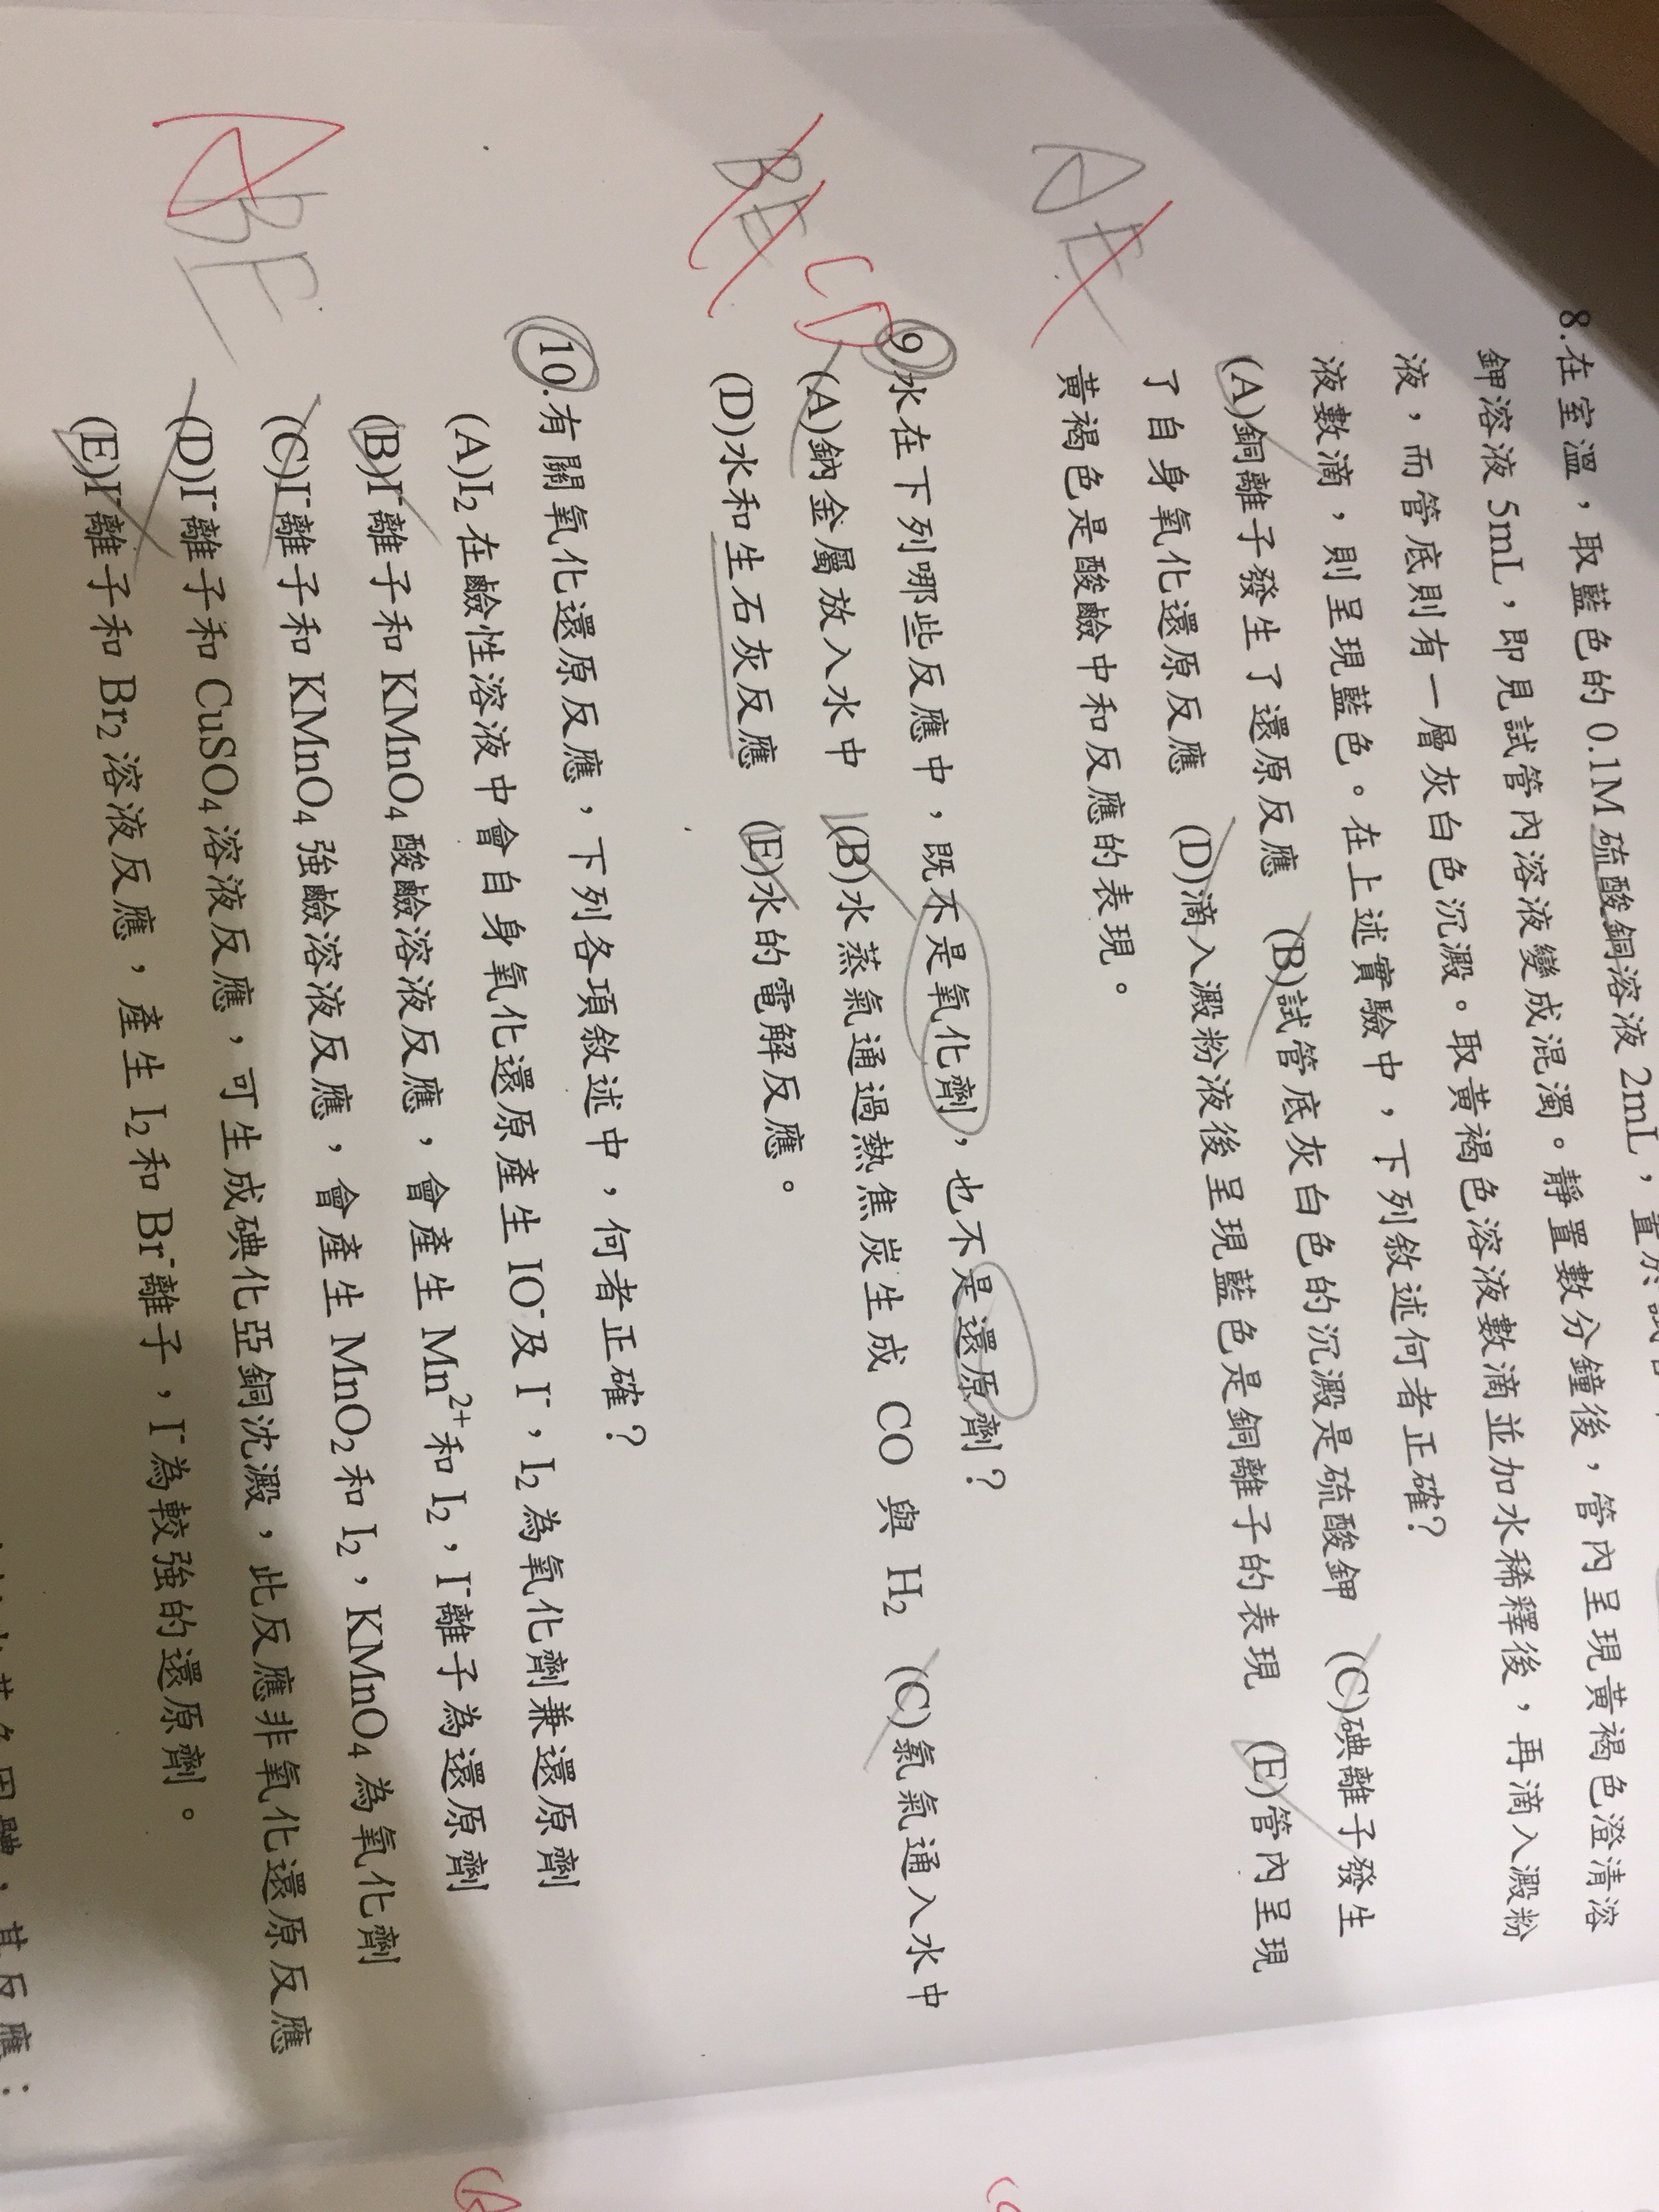 8.在室溫，取藍色的 0.1M 硫酸銅溶液 2mL，置於試
鉀溶液 5mL，即見試管內溶液變成混濁。靜置數分鐘後，管內呈現黃褐色澄清溶
液，而管底則有一層灰白色沉澱。取黃褐色溶液數滴並加水稀釋後，再滴入澱粉
液數滴，則呈現藍色。在上述實驗中，下列敘述何者正確？
(A)銅離子發生了還原反應 (B)試管底灰白色的沉澱是硫酸鉀 (C)碘離子發生
了自身氧化還原反應 (D)滴入澱粉液後呈現藍色是銅離子的表現 (E)管內呈現
黃褐色是酸鹼中和反應的表現。
AE
9.水在下列哪些反應中，既不是氧化劑，也不是還原劑？
(A)鈉金屬放入水中 (B)水蒸氣通過熱焦炭生成 CO 與 H2 (C)氯氣通入水中
(D)水和生石灰反應 (E)水的電解反應。
BE CD
10.有關氧化還原反應，下列各項敘述中，何者正確？
(A)I2 在鹼性溶液中會自身氧化還原產生 IO-及 I-，I2 為氧化劑兼還原劑
(B)I-離子和 KMnO4 酸鹼溶液反應，會產生 Mn2+和 I2，I-離子為還原劑
(C)I-離子和 KMnO4 強鹼溶液反應，會產生 MnO2 和 I2，KMnO4 為氧化劑
(D)I-離子和 CuSO4 溶液反應，可生成碘化亞銅沈澱，此反應非氧化還原反應
(E)I-離子和 Br2 溶液反應，產生 I2 和 Br-離子，I-為較強的還原劑。
ABE